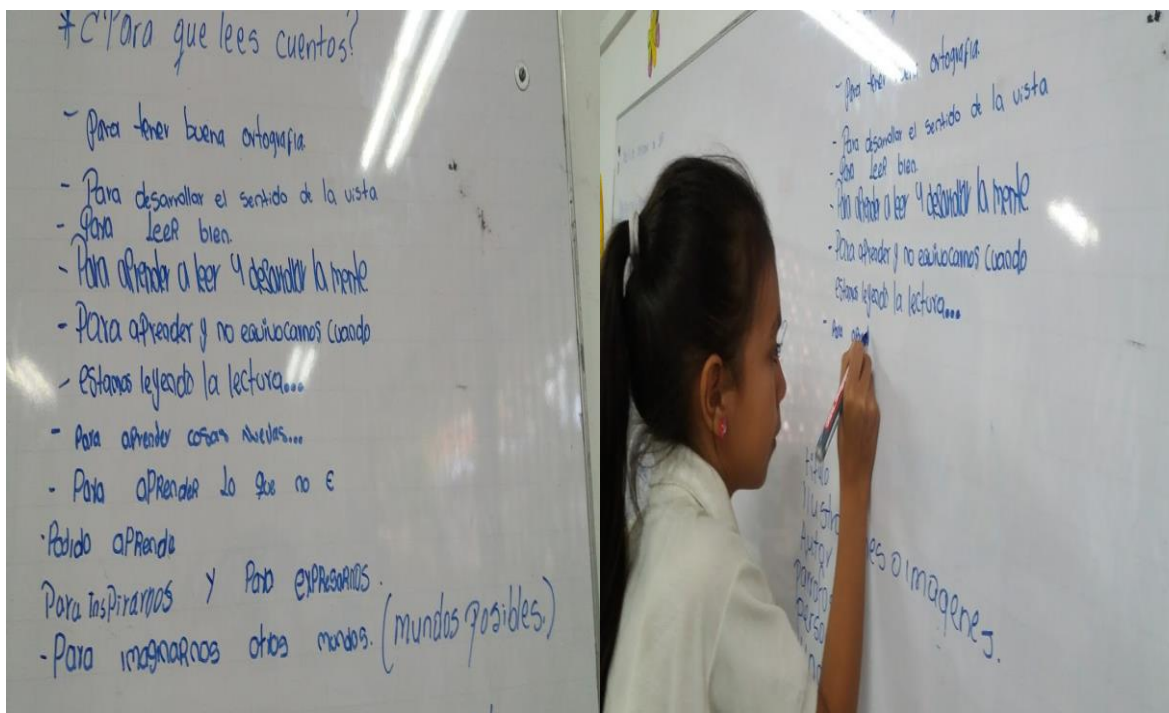 * ¿Para que lees cuentos?
- Para tener buena ortografia.
- Para desarrollar el sentido de la vista
- Para LeeR bien.
- Para aprender a leer y desarrollar la mente
- Para aprender y no equivocarnos cuando
- estamos leyendo la lectura...
- Para aprender cosas nuevas...
- Para aPRendeR Lo que no e
· Podido aPRende
Para Inspirarnos y Para expresarnos.
- Para imaginaRnos otros mundos. (mundos posibles.)
- Para tener ortografia.
- Para desarrollar el sentido de la vista
- Para LeeR bien.
- Para aprender a leer y desarrollar la mente
- Para aprender y no equivocarnos cuando
estamos leyendo la lectura...
- Para
titulo
es o imagenes.
Autor